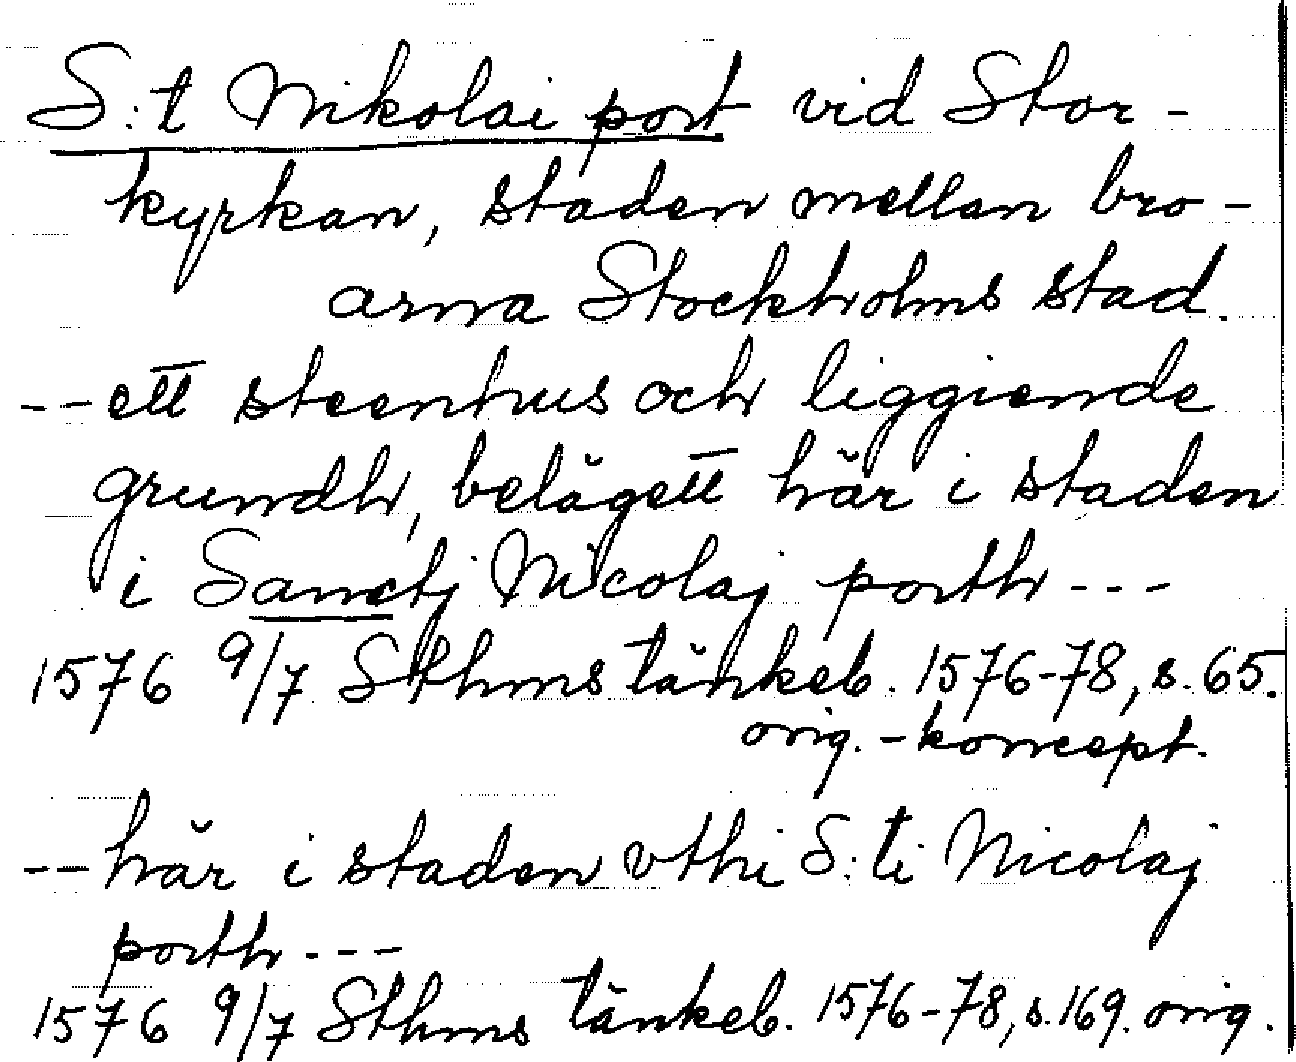 S:t Nikolai port vid Stor-
kyrkan, staden mellan bro-
arna Stockholms stad.
--ett steenhus och liggiende
grundh, belägett här i staden
i Sanctj Nicolaj porth---
1576 9/7 Sthms tänkeb. 1576-78, s. 65.
orig.-koncept.
--här i staden vthi S:ti Nicolaj
porth---
1576 9/7 Sthms tänkeb. 1576-78, s. 169. orig.